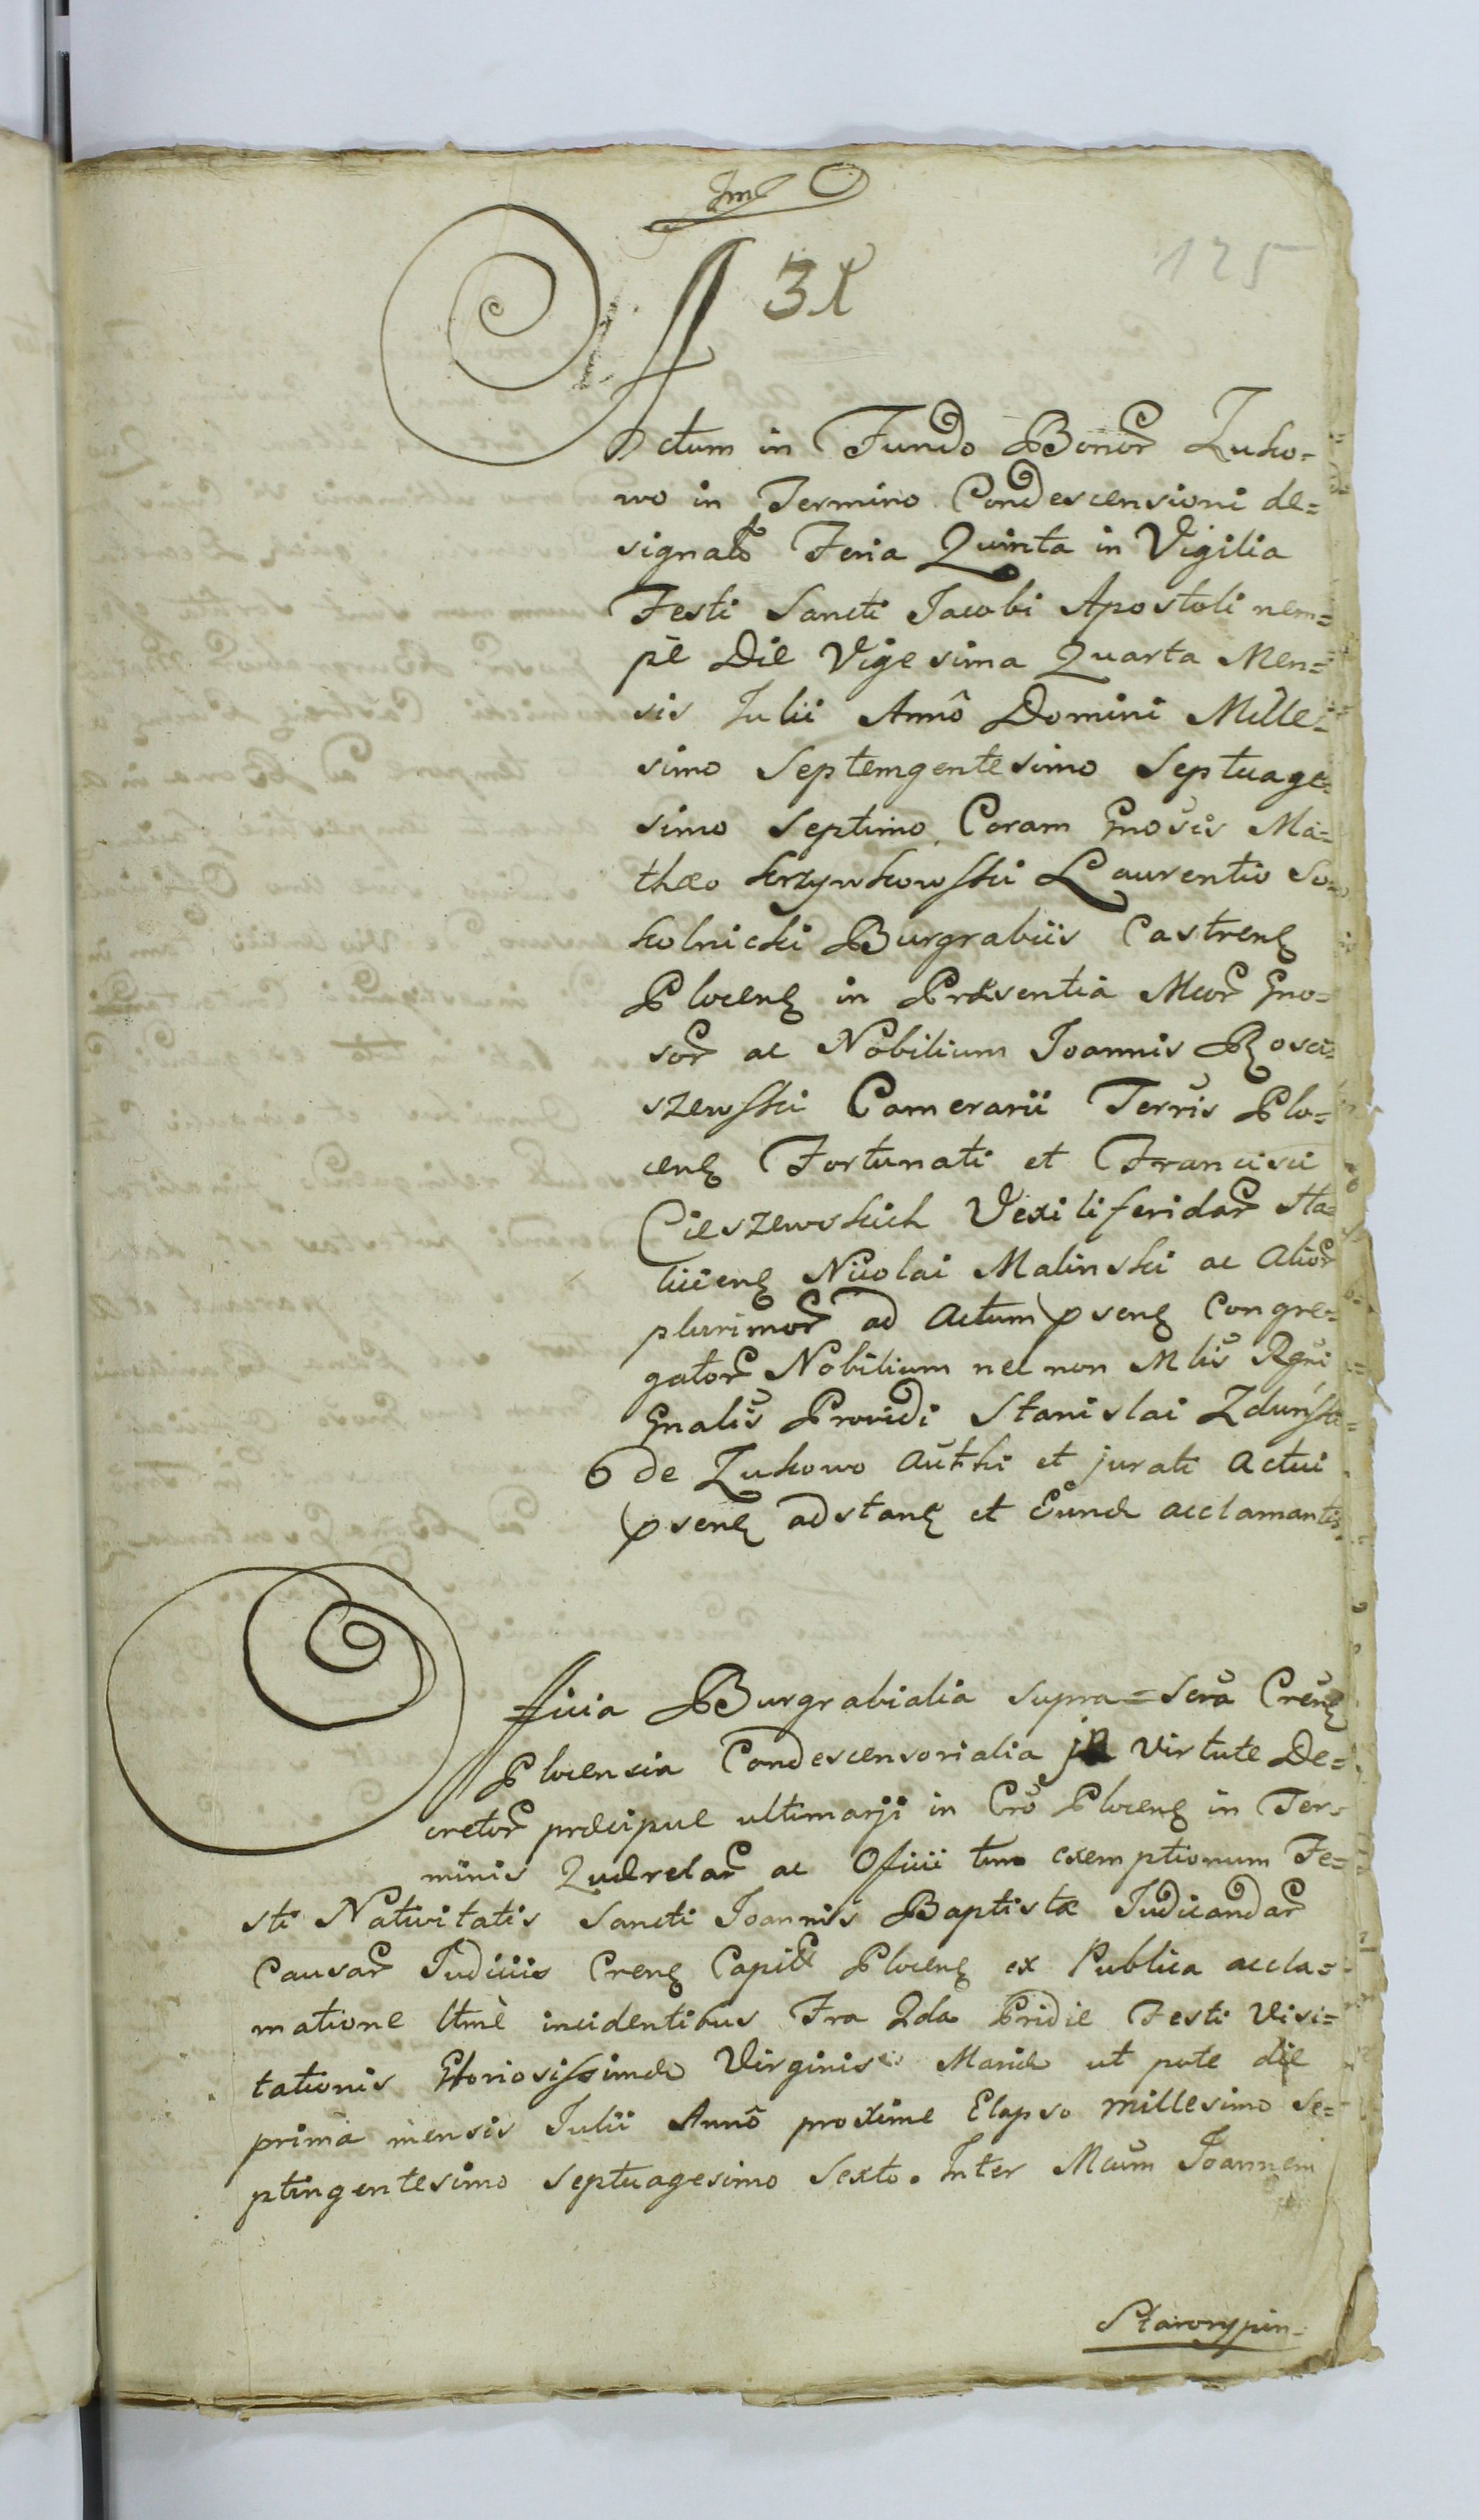 125
Actum in Fundo Bonor Zuko=
wo in Termino Condescensioni de=
signato Feria Quinta in Vigilia
Festi Sancti Jacobi Apostoli nem=
pè Die Vigesima Quarta Men=
sis Julii Annô Domini Mille=
simo Septemgentesimo Septuage=
simo Septimo Coram Gnosis Ma=
thæo Krzywkowski Laurentio So=
kolnicki Burgrabiis Castren
Plocen in Præsentia Mcor Gno=
sor ac Nobilium Joannis Rosci=
szewski Camerarii Terris Plo=
cen Fortunati et Francisci
Cieszewskich Vexiliferidar
Nicolai Malinski ac alior
plurimor ad Actum psen Congre=
gator Nobilium nec non Mlis Rgni
Gnalis Providi Stanislai Zduńsk=
de Zukowo Authi et jurati Actui
psen adstan et Eund acclamantis
Officia Burgrabialia supra=scra Cren
Plocensia Condescensorialia in Virtute De=
cretor præcipue ultimarji in Cro Plocen in Ter=
minis Quærelar ac Officii tum exemptionum Fe=
sti Nativitatis Sancti Joannis Baptistæ Judicandar
Causar Judiciis Cren Capit Plocen ex Publica accla=
matione ltmè incidentibus Fra 2da Pridie Festi Visi=
tationis Gloriosissimæ Virginis Mariæ ut pote die
prima mensis Julii Annô proxime Elapso millesimo Se=
ptingentesimo Septuagesimo Sexto. Inter Mcum Joannem
Starorypin=